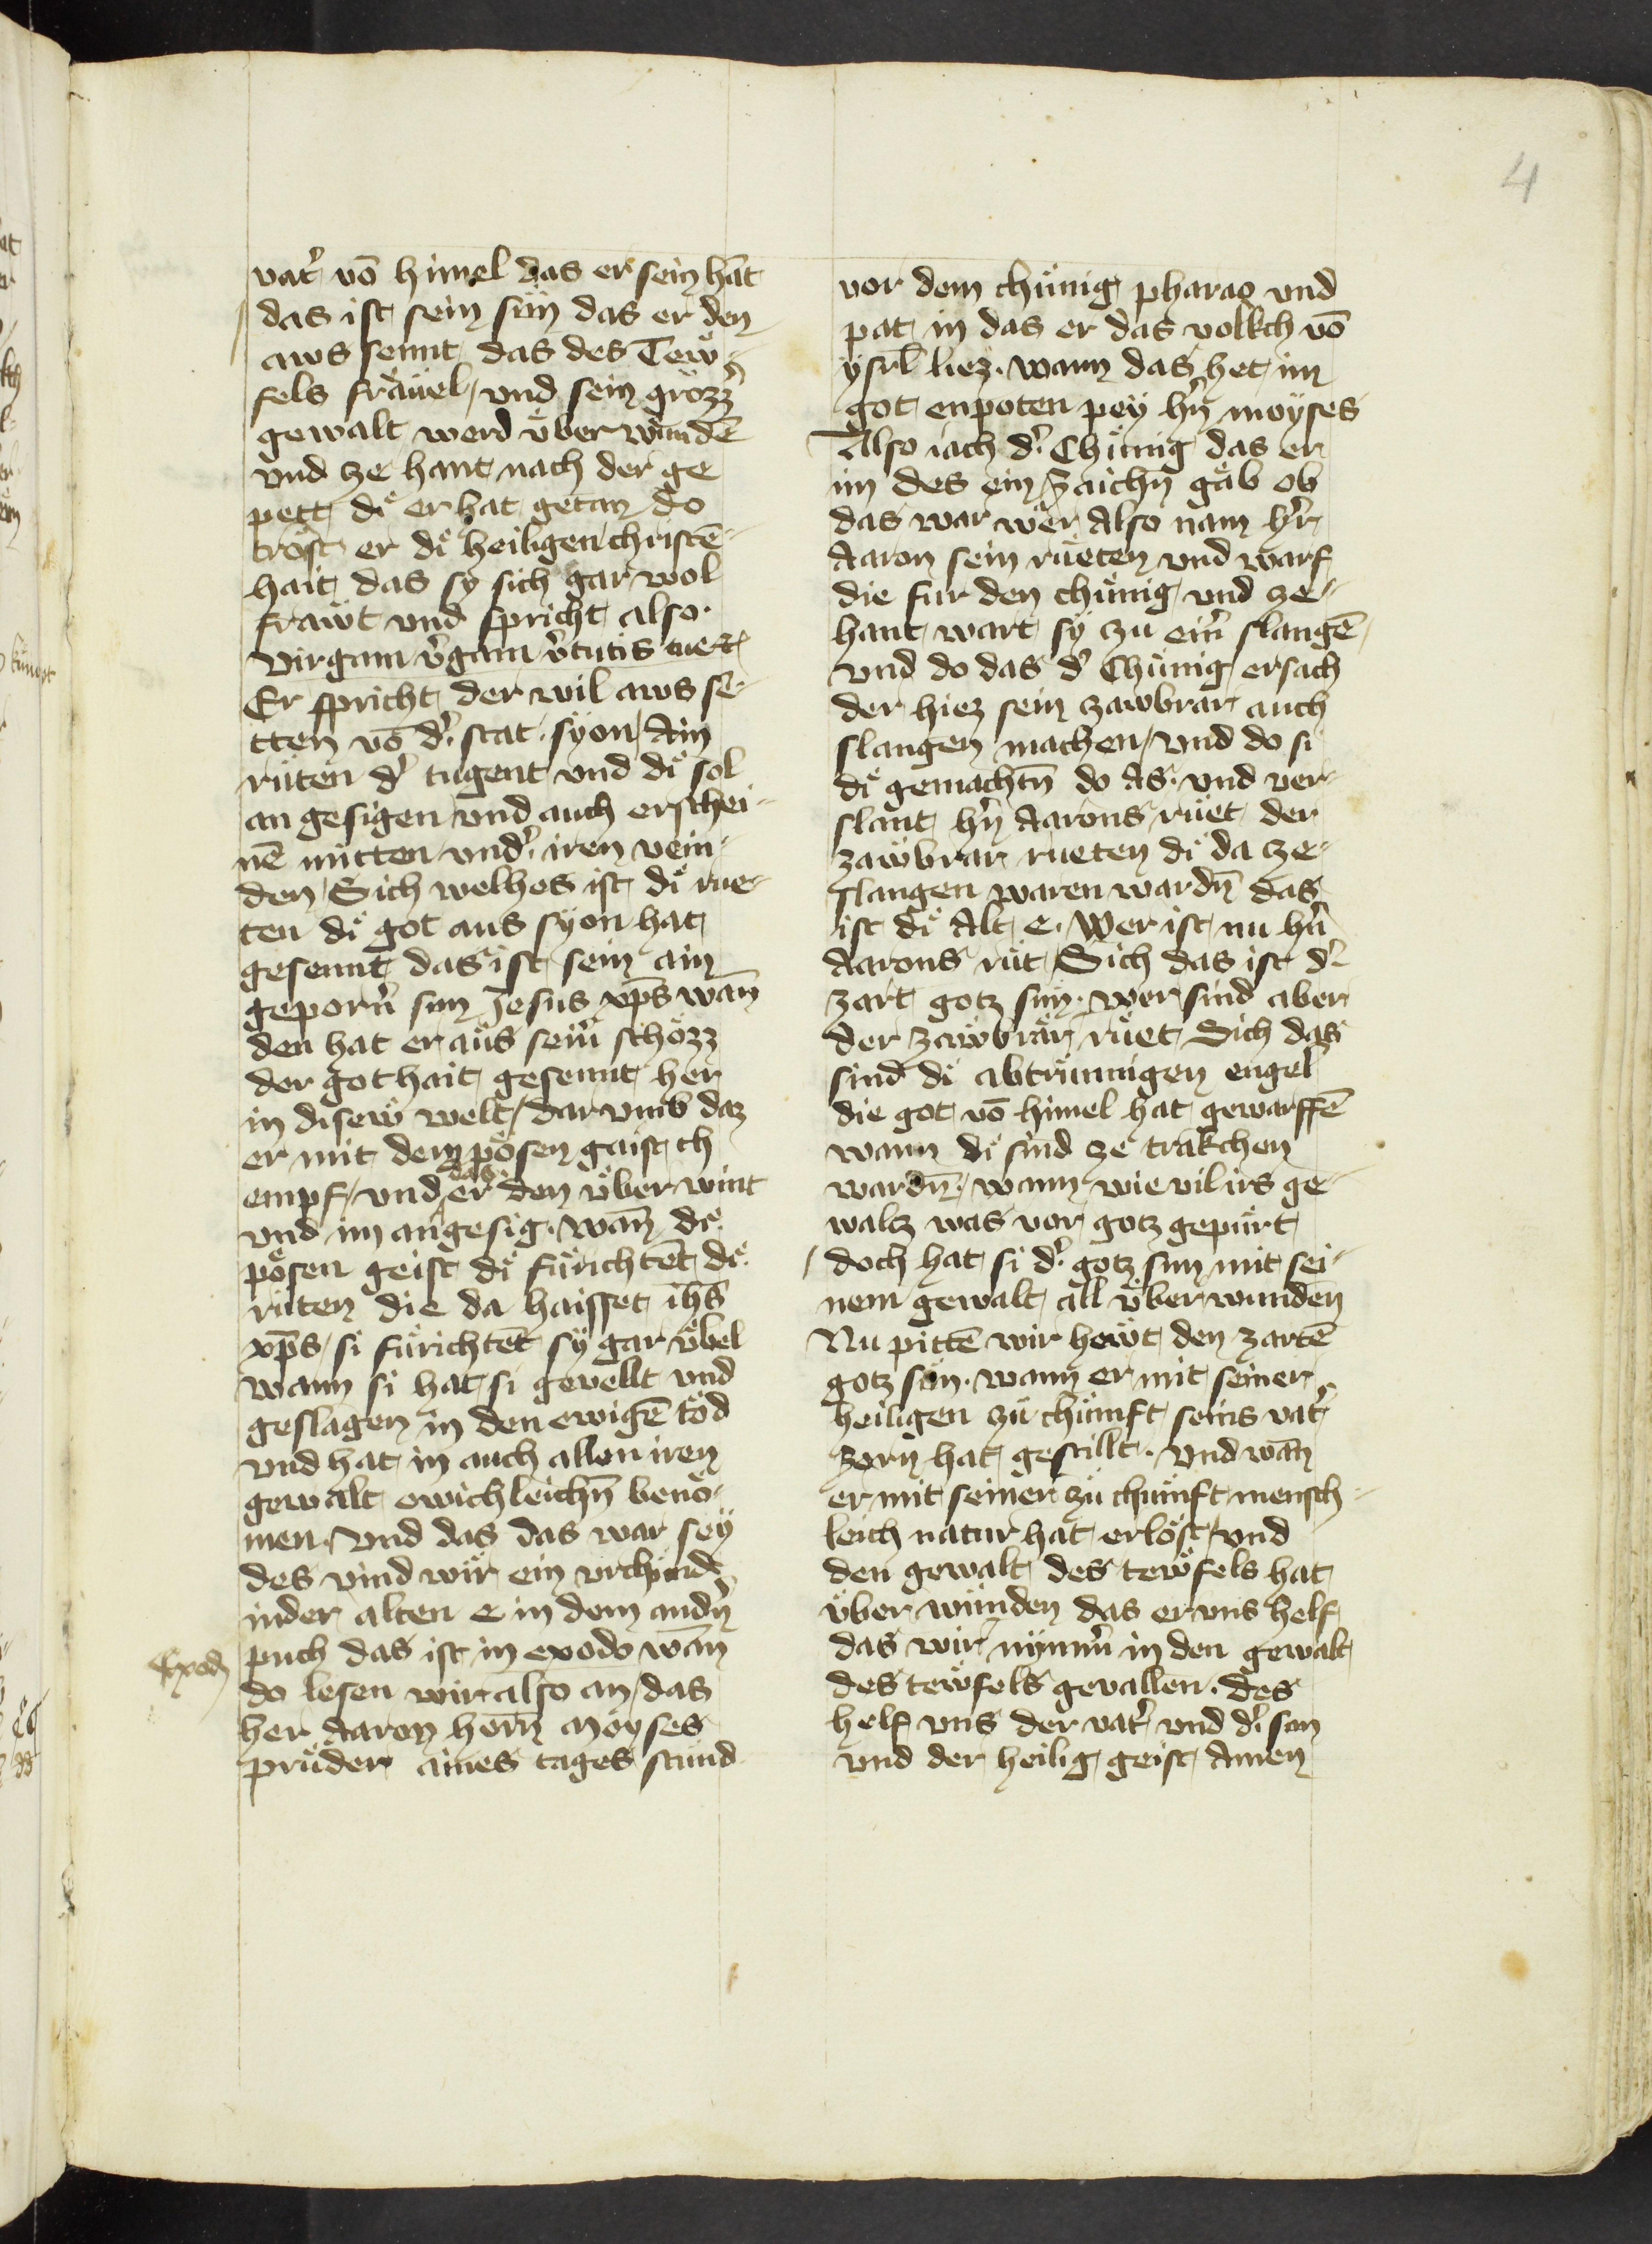 4
vat̉ vō himel das er sein hāt
das ist sein sün das er den
aws sennt das des Tew̎
fels fräuel / vnd sein grözz̉
gewalt werd v̈ber wundē
vnd ze hant nach der ge
pett di̎ er hat getan do
tröst er di̎ heiligen christē
hait das sy sich gar wol
fraẅt vnd spricht also ·
Virgam v̉gam v̉tutis tue
Er spricht der wil aws se
tten vō d̉ stat syon / Ain
rüten d̉ tugent vnd di̎ sol
an gesigen vnd auch erschei
nē mitten vnd̉ iren vein
den / Sich welhes ist di̎ rue
ten di̎ got aus syon hat
gesennt das ist sein ain
geporn̉ sun Jesus xp̄s wān
den hat er aus seim̉ schözz
der gothait gesennt her
in disew̎ welt / dar vmb daz
er mit dem pösen gaist ch
empf / vnd das er den v̈ber wint
vnd im angesig · wān di̎
pösen geist di̎ fürichtēt di̎
rüten die da haisset ih̄s
xp̄s / si fürichtēt sÿ gar v̈bel
wann si hat si gevellt vnd
geslagen in den ewigē töd
vnd hat in auch allen iren
gewalt ewichleichn̄ benö
men · Vnd das das war seÿ
des vind wir ein vrchünd
inder alten e in dem andn̉
Exod
puch das ist in exodo wān
do lesen wir also an / das
her Aaron hern̄ Moyses
prüder aines tages stund
vor dem chünig pharao vnd
pat in das er das volkch vō
ÿsrl̄ liez · wann das het im
got enpoten peÿ hn̉ moÿses
Also iach d̉ Chünig das er
im des ein zaichn̄ gäb ob
das war wer Also nam hr̉
Aaron sein rüeten vnd warf
die fur den chünig vnd ze
hant wart sÿ zu ein̉ slangē
vnd do das d̉ Chünig ersach
der hiez sein zawbrar auch
slangen machen / vnd do si
di̎ gemachtn̄ do As · vnd ver
slant hn̉ Aarons rüet der
zaẅbrar rueten di̎ da ze
slangen waren wardn̄ das
ist di̎ Alt e · Wer ist nu hn̉
Aarons rüt / Sich das ist d̉
zart gotz sun · wer sind aber
der zaẅbrär rüet Sich das
sind di̎ abtrünnigen engel
die got vō himel hat gewarffē
wann di̎ sind ze träkchen
wardn̄ / wann wie vil irs ge
waltz was vor gotz gepürt
doch hat si d̉ gotz sun mit sei
nem gewalt all v̈ber wunden
Nu pittē wir heẅt den zartē
gotz sün · wann er mit seiner
heiligen zü chünft seins vat̉
zorn hat gestillt · vnd wān
er mit seiner zü chünft mensch
leich natur hat erlöst / vnd
den gewalt des teẅfels hat
v̈ber wünden das er vns helf
das wir nÿmm̉ in den gewalt
des teẅfels gevallen · des
helf vns der vat̉ vnd d̉ sun
vnd der heilig geist Amen